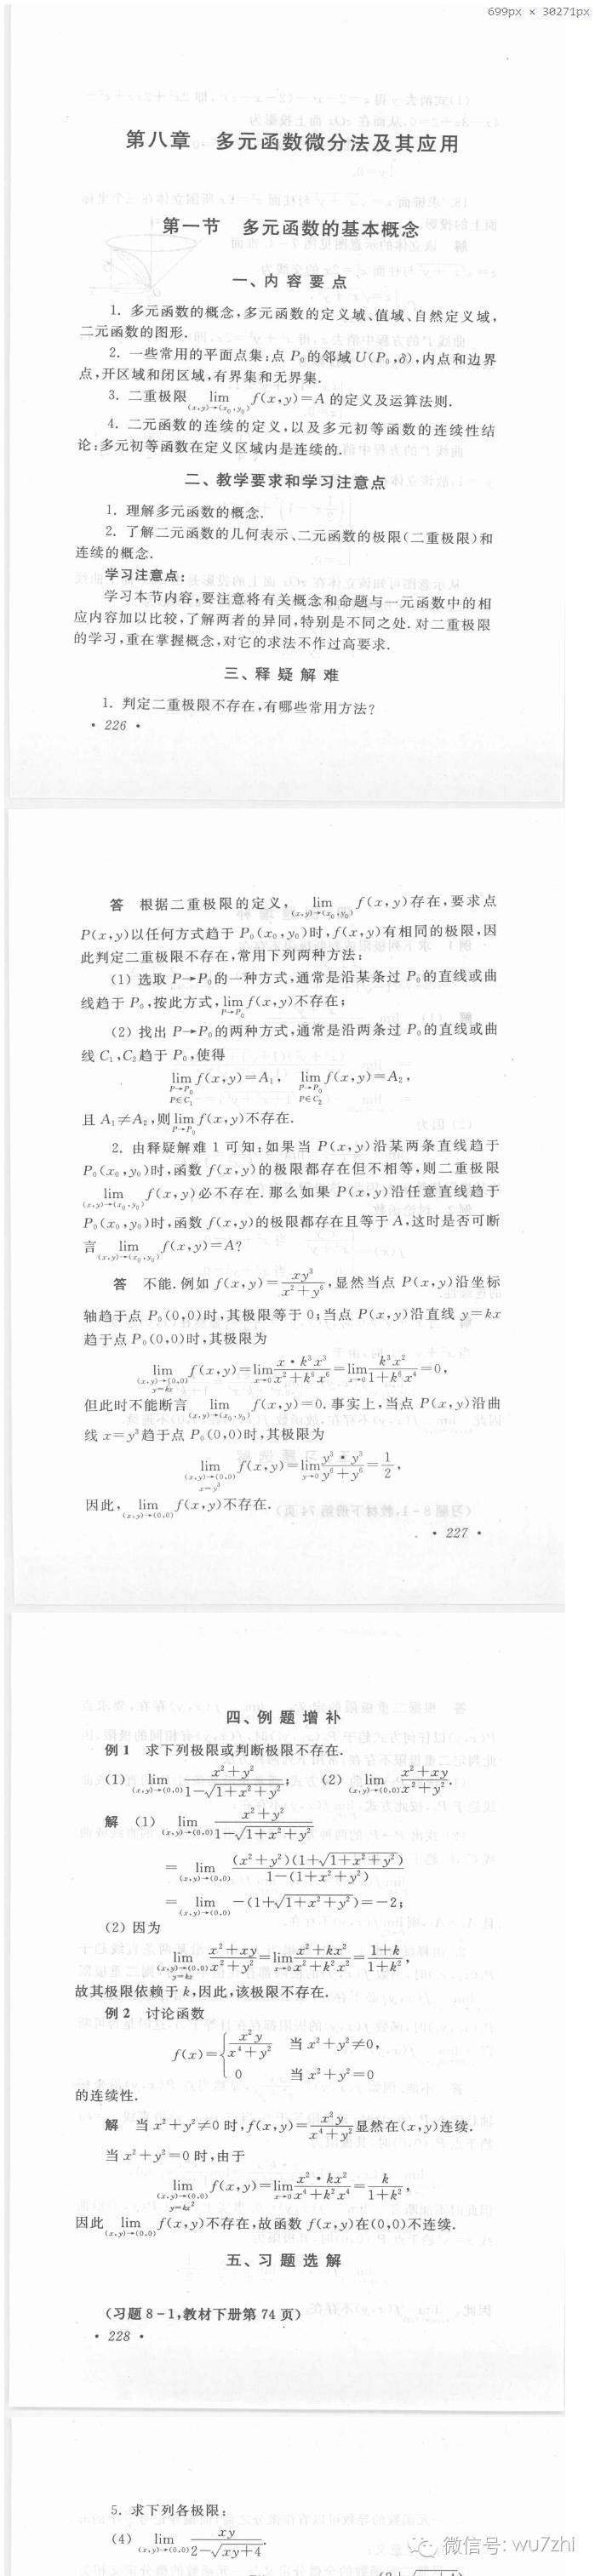 699px × 30271px
第八章 多元函数微分法及其应用
第一节 多元函数的基本概念
一、内容要点
1. 多元函数的概念,多元函数的定义域、值域、自然定义域,
二元函数的图形.
2. 一些常用的平面点集:点 P₀的邻域 U(P₀,δ),内点和边界
点,开区域和闭区域,有界集和无界集.
3. 二重极限 lim f(x,y)=A 的定义及运算法则.
(x,y)→(x₀,y₀)
4. 二元函数的连续的定义,以及多元初等函数的连续性结
论:多元初等函数在定义区域内是连续的.
二、教学要求和学习注意点
1. 理解多元函数的概念.
2. 了解二元函数的几何表示、二元函数的极限(二重极限)和
连续的概念.
学习注意点:
学习本节内容,要注意将有关概念和命题与一元函数中的相
应内容加以比较,了解两者的异同,特别是不同之处.对二重极限
的学习,重在掌握概念,对它的求法不作过高要求.
三、释疑解难
1. 判定二重极限不存在,有哪些常用方法?
· 226 ·
答 根据二重极限的定义, lim f(x,y)存在,要求点
(x,y)→(x₀,y₀)
P(x,y)以任何方式趋于 P₀(x₀,y₀)时,f(x,y)有相同的极限,因
此判定二重极限不存在,常用下列两种方法:
(1) 选取 P→P₀的一种方式,通常是沿某条过 P₀的直线或曲
线趋于 P₀,按此方式,lim f(x,y)不存在;
P→P₀
(2) 找出 P→P₀的两种方式,通常是沿两条过 P₀的直线或曲
线 C₁,C₂趋于 P₀,使得
lim f(x,y)=A₁, lim f(x,y)=A₂,
P→P₀ P→P₀
P∈C₁ P∈C₂
且 A₁≠A₂,则lim f(x,y)不存在.
P→P₀
2. 由释疑解难 1 可知:如果当 P(x,y)沿某两条直线趋于
P₀(x₀,y₀)时,函数 f(x,y)的极限都存在但不相等,则二重极限
lim f(x,y)必不存在.那么如果 P(x,y)沿任意直线趋于
(x,y)→(x₀,y₀)
P₀(x₀,y₀)时,函数 f(x,y)的极限都存在且等于 A,这时是否可断
言 lim f(x,y)=A?
(x,y)→(x₀,y₀)
答 不能.例如 f(x,y)=xy³/(x²+y⁶),显然当点 P(x,y)沿坐标
轴趋于点 P₀(0,0)时,其极限等于 0;当点 P(x,y)沿直线 y=kx
趋于点 P₀(0,0)时,其极限为
lim f(x,y)=lim x·k³x³/(x²+k⁶x⁶)=lim k³x²/(1+k⁶x⁴)=0,
(x,y)→(0,0) x→0 x→0
y=kx
但此时不能断言 lim f(x,y)=0.事实上,当点 P(x,y)沿曲
(x,y)→(0,0)
线 x=y³趋于点 P₀(0,0)时,其极限为
lim f(x,y)=lim y³·y³/(y⁶+y⁶)=1/2,
(x,y)→(0,0) y→0
x=y³
因此, lim f(x,y)不存在.
(x,y)→(0,0)
· 227 ·
四、例题增补
例 1 求下列极限或判断极限不存在.
(1) lim (x²+y²)/(1-√(1+x²+y²)); (2) lim (x²+xy)/(x²+y²).
(x,y)→(0,0) (x,y)→(0,0)
解 (1) lim (x²+y²)/(1-√(1+x²+y²))
(x,y)→(0,0)
= lim (x²+y²)(1+√(1+x²+y²))/(1-(1+x²+y²))
(x,y)→(0,0)
= lim -(1+√(1+x²+y²))=-2;
(x,y)→(0,0)
(2) 因为
lim (x²+xy)/(x²+y²)=lim (x²+kx²)/(x²+k²x²)=(1+k)/(1+k²),
(x,y)→(0,0) x→0
y=kx
故其极限依赖于 k,因此,该极限不存在.
例 2 讨论函数
f(x)={ x²y/(x⁴+y²) 当 x²+y²≠0,
0 当 x²+y²=0
的连续性.
解 当 x²+y²≠0 时,f(x,y)=x²y/(x⁴+y²)显然在(x,y)连续.
当 x²+y²=0 时,由于
lim f(x,y)=lim x²·kx²/(x⁴+k²x⁴)=k/(1+k²),
(x,y)→(0,0) x→0
y=kx²
因此 lim f(x,y)不存在,故函数 f(x,y)在(0,0)不连续.
(x,y)→(0,0)
五、习题选解
(习题 8-1,教材下册第 74 页)
· 228 ·
5. 求下列各极限:
(4) lim xy/(2-√(xy+4)).
(x,y)→(0,0)
微信号: wu7zhi